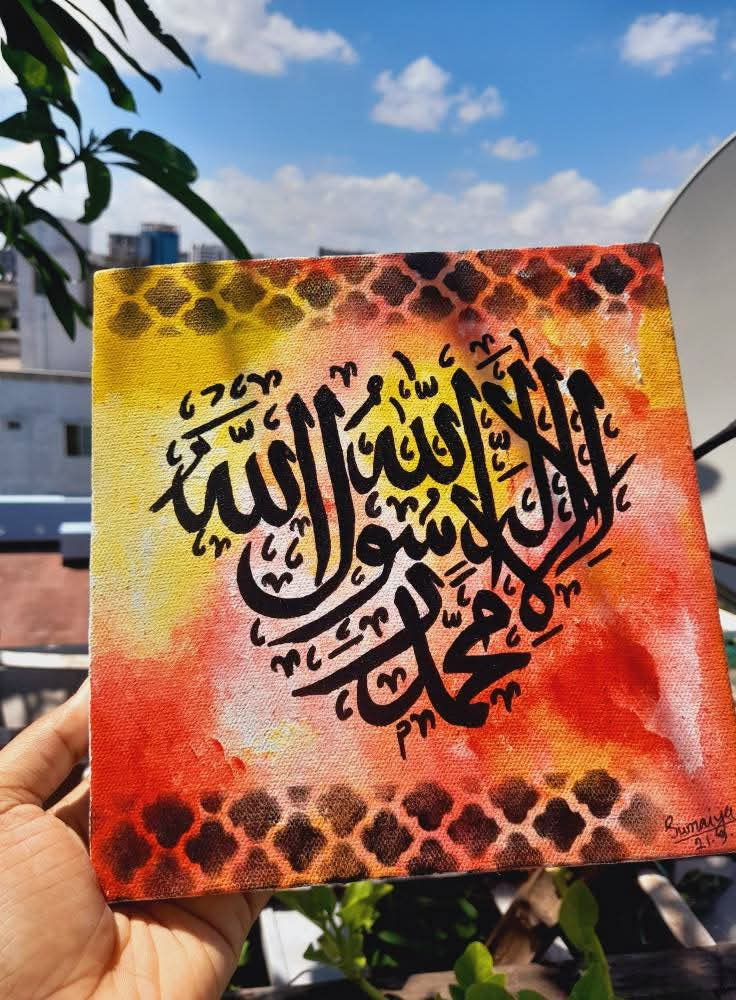 لا إله إلا الله
محمد رسول الله
Sumaiya
21.9.